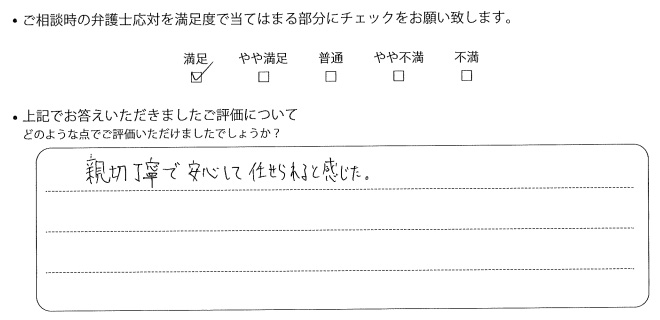 ・ご相談時の弁護士応対を満足度で当てはまる部分にチェックをお願い致します。
満足 やや満足 普通 やや不満 不満
☑ □ □ □ □
・上記でお答えいただきましたご評価について
どのような点でご評価いただけましたでしょうか？
親切丁寧で安心して任せられると感じた。